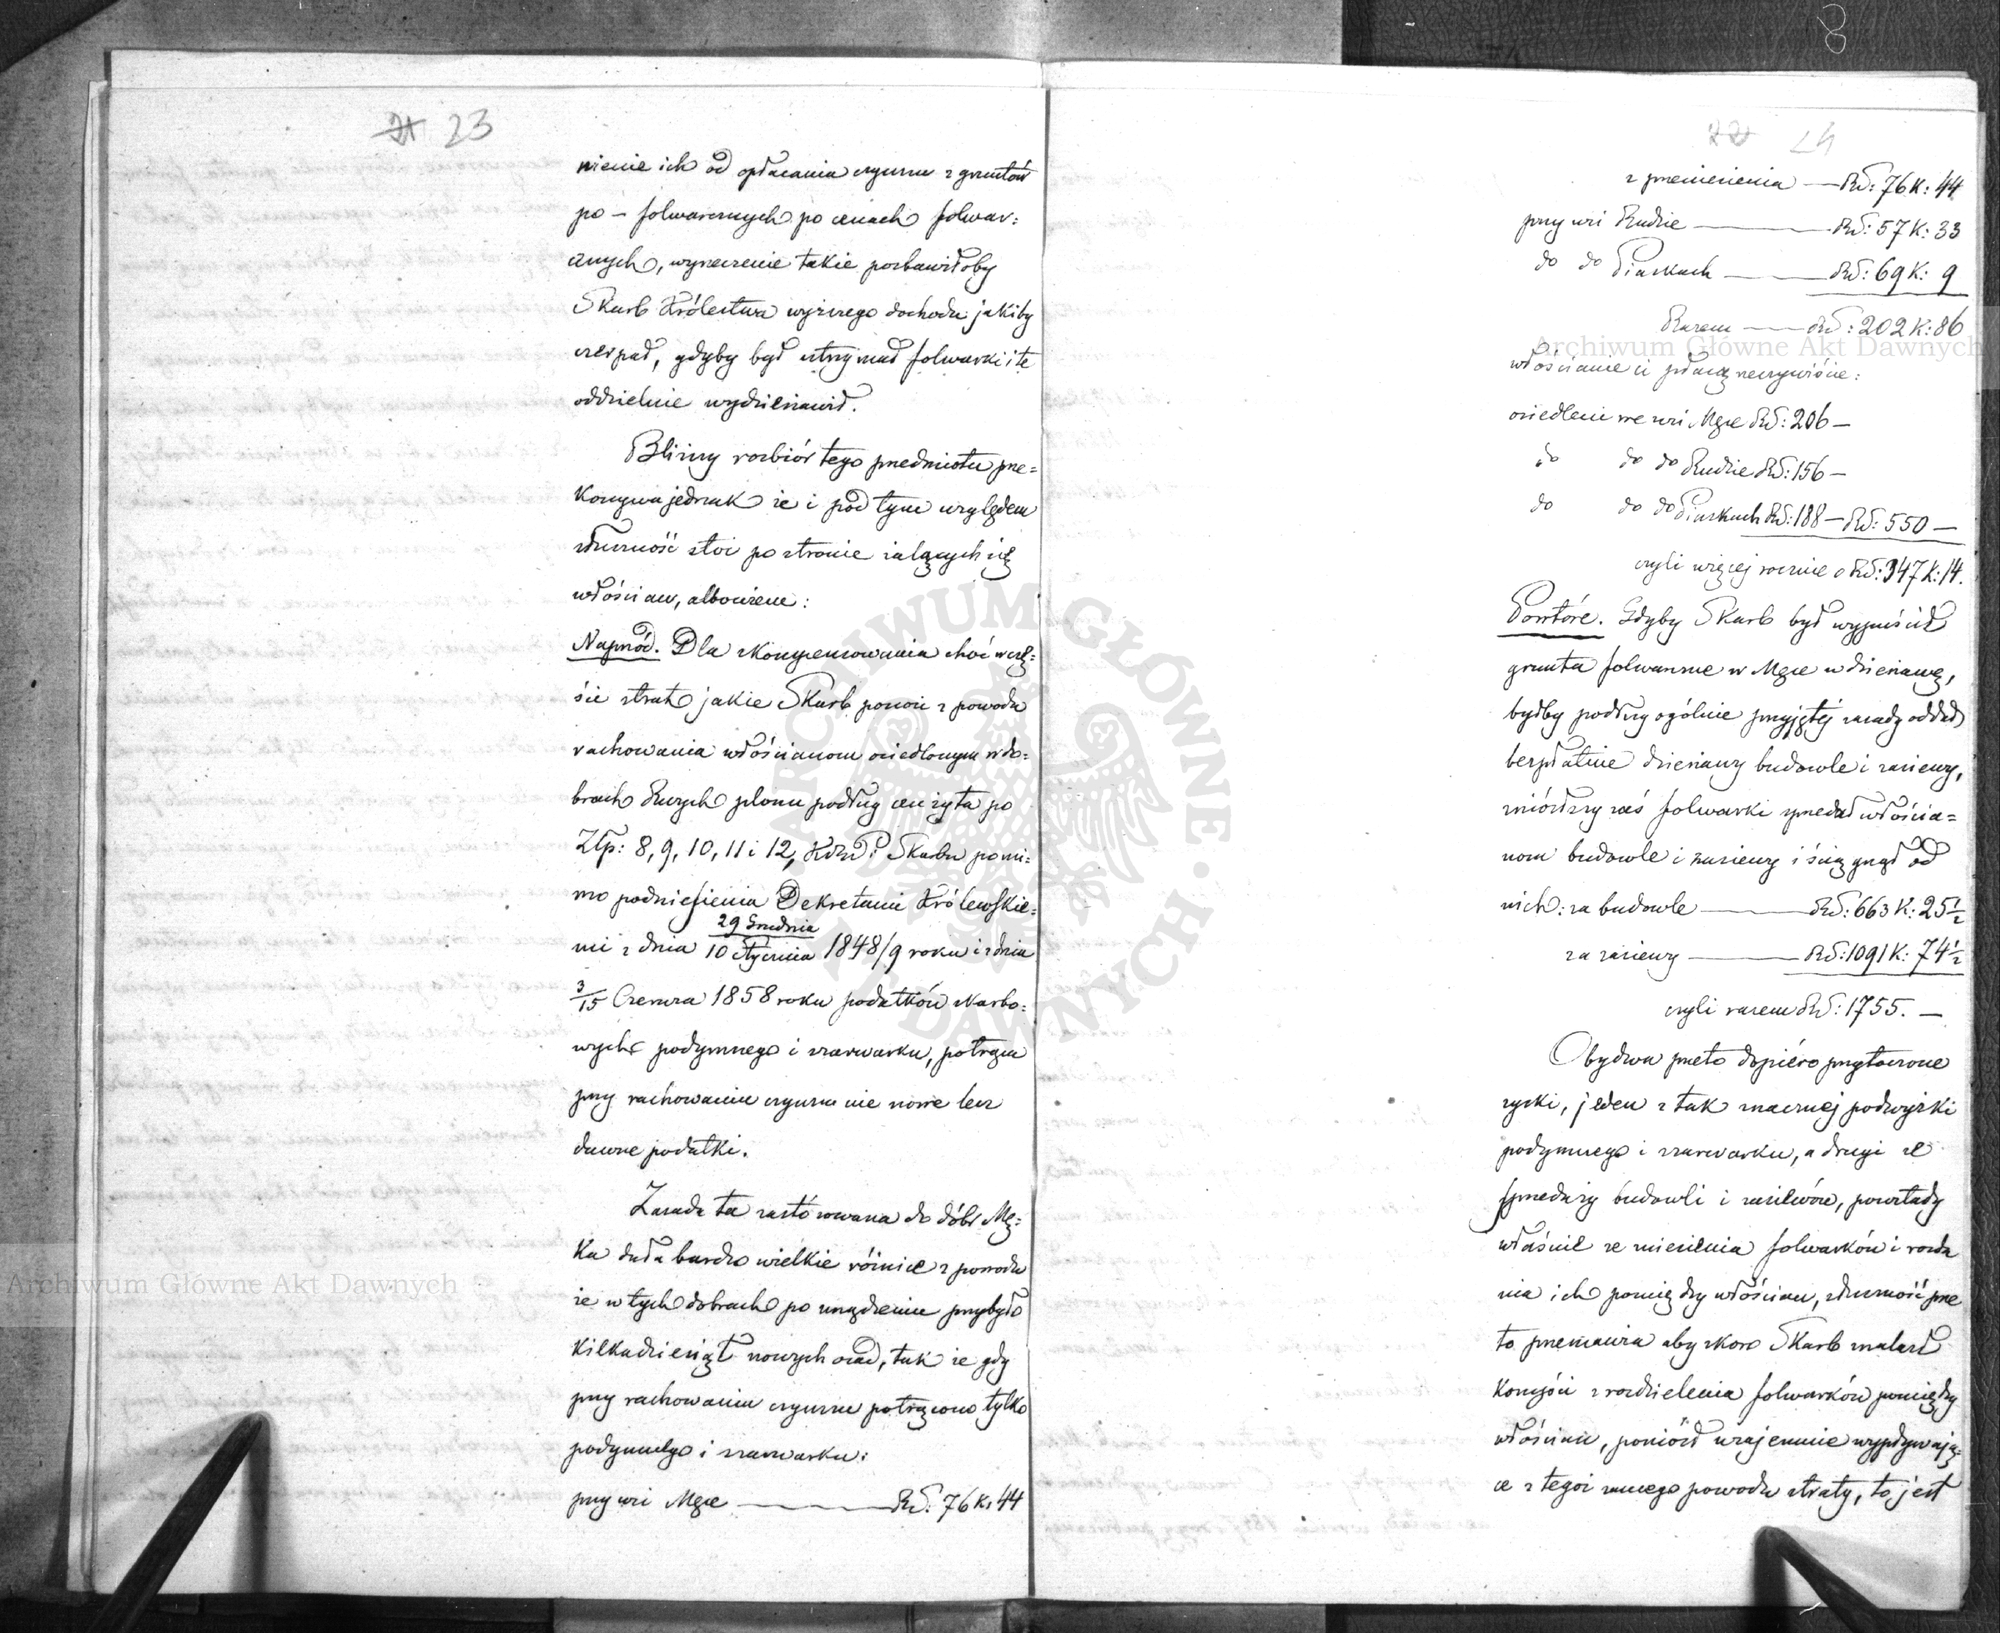 23
wienie ich od opłacania czynszu z gruntów
po-folwarcznych po cenach folwar:
cznych, wyrzeczenie takie pozbawiłoby
Skarb Królestwa wyższego dochodu jakiby
czerpał, gdyby był utrzymał folwarki i te
oddzielnie wydzierżawił.
Bliższy rozbiór tego przedmiotu prze=
konywa jednak że i pod tym względem
słuszność stoi po stronie żalących się
włościan, albowiem:
Naprzód. Dla skompensowania choć w czę=
ści strat jakie Skarb ponosi z powodu
rachowania włościanom osiedlonym w do=
brach Rwych plonu podług cen żyta po
Złp: 8, 9, 10, 11 i 12, Skarbu pomi=
mo podniesienia Dekretami Królewskie=
29 Grudnia
mi z dnia 10 Stycznia 1848/9 roku i z dnia
3/15 Czerwca 1858 roku podatków skarbo=
wych podymnego i szarwarku, potrąca
przy rachowaniu czynszu nie nowe lecz
dawne podatki.
Zasada ta zastosowana do dóbr Mę=
ka dała bardzo wielkie różnice z powodu
że w tych dobrach po urządzeniu przybyło
kilkadziesiąt nowych osad, tak że gdy
przy rachowaniu czynszu potrącono tylko
podymnego i szarwarku:
przy wsi Męce — RS: 76 K: 44
24
z przeniesienia — RS: 76 K: 44
przy wsi Rudzie — RS: 57 K: 33
do do Piaskach — RS: 69 K: 9
Razem — RS: 202 K: 86
włościanie ci płacą rzeczywiście:
osiedleni we wsi Męce RS: 206 —
do do do Rudzie RS: 156 —
do do do Piaskach RS: 188 — RS: 550 —
czyli więcej rocznie o RS: 347 K: 14.
Powtóre. Gdyby Skarb był wypuścił
grunta folwarczne w Męce w dzierżawę,
byłby podług ogólnie przyjętej zasady oddał
bezpłatnie dzierżawcy budowle i zasiewy,
zniósłszy zaś folwarki sprzedał włościa=
nom budowle i zasiewy i ściągnął od
nich: za budowle — RS: 663 K: 25 1/2
za zasiewy — RS: 1091 K: 74 1/2
czyli razem RS: 1755. —
Obydwa przeto dopiero przytoczone
zyski, jeden z tak znacznej podwyżki
podymnego i szarwarku, a drugi ze
sprzedaży budowli i zasiewów, powstały
właśnie ze zniesienia folwarków i rozda
nia ich pomiędzy włościan, słuszność prze
to przemawia aby skoro Skarb znalazł
korzyści z rozdzielenia folwarków pomiędzy
włościan, poniósł wzajemnie wypływają=
ce z tegoż samego powodu straty, to jest
Archiwum Główne Akt Dawnych
Archiwum Główne Akt Dawnych
ARCHIWUM GŁÓWNE AKT DAWNYCH